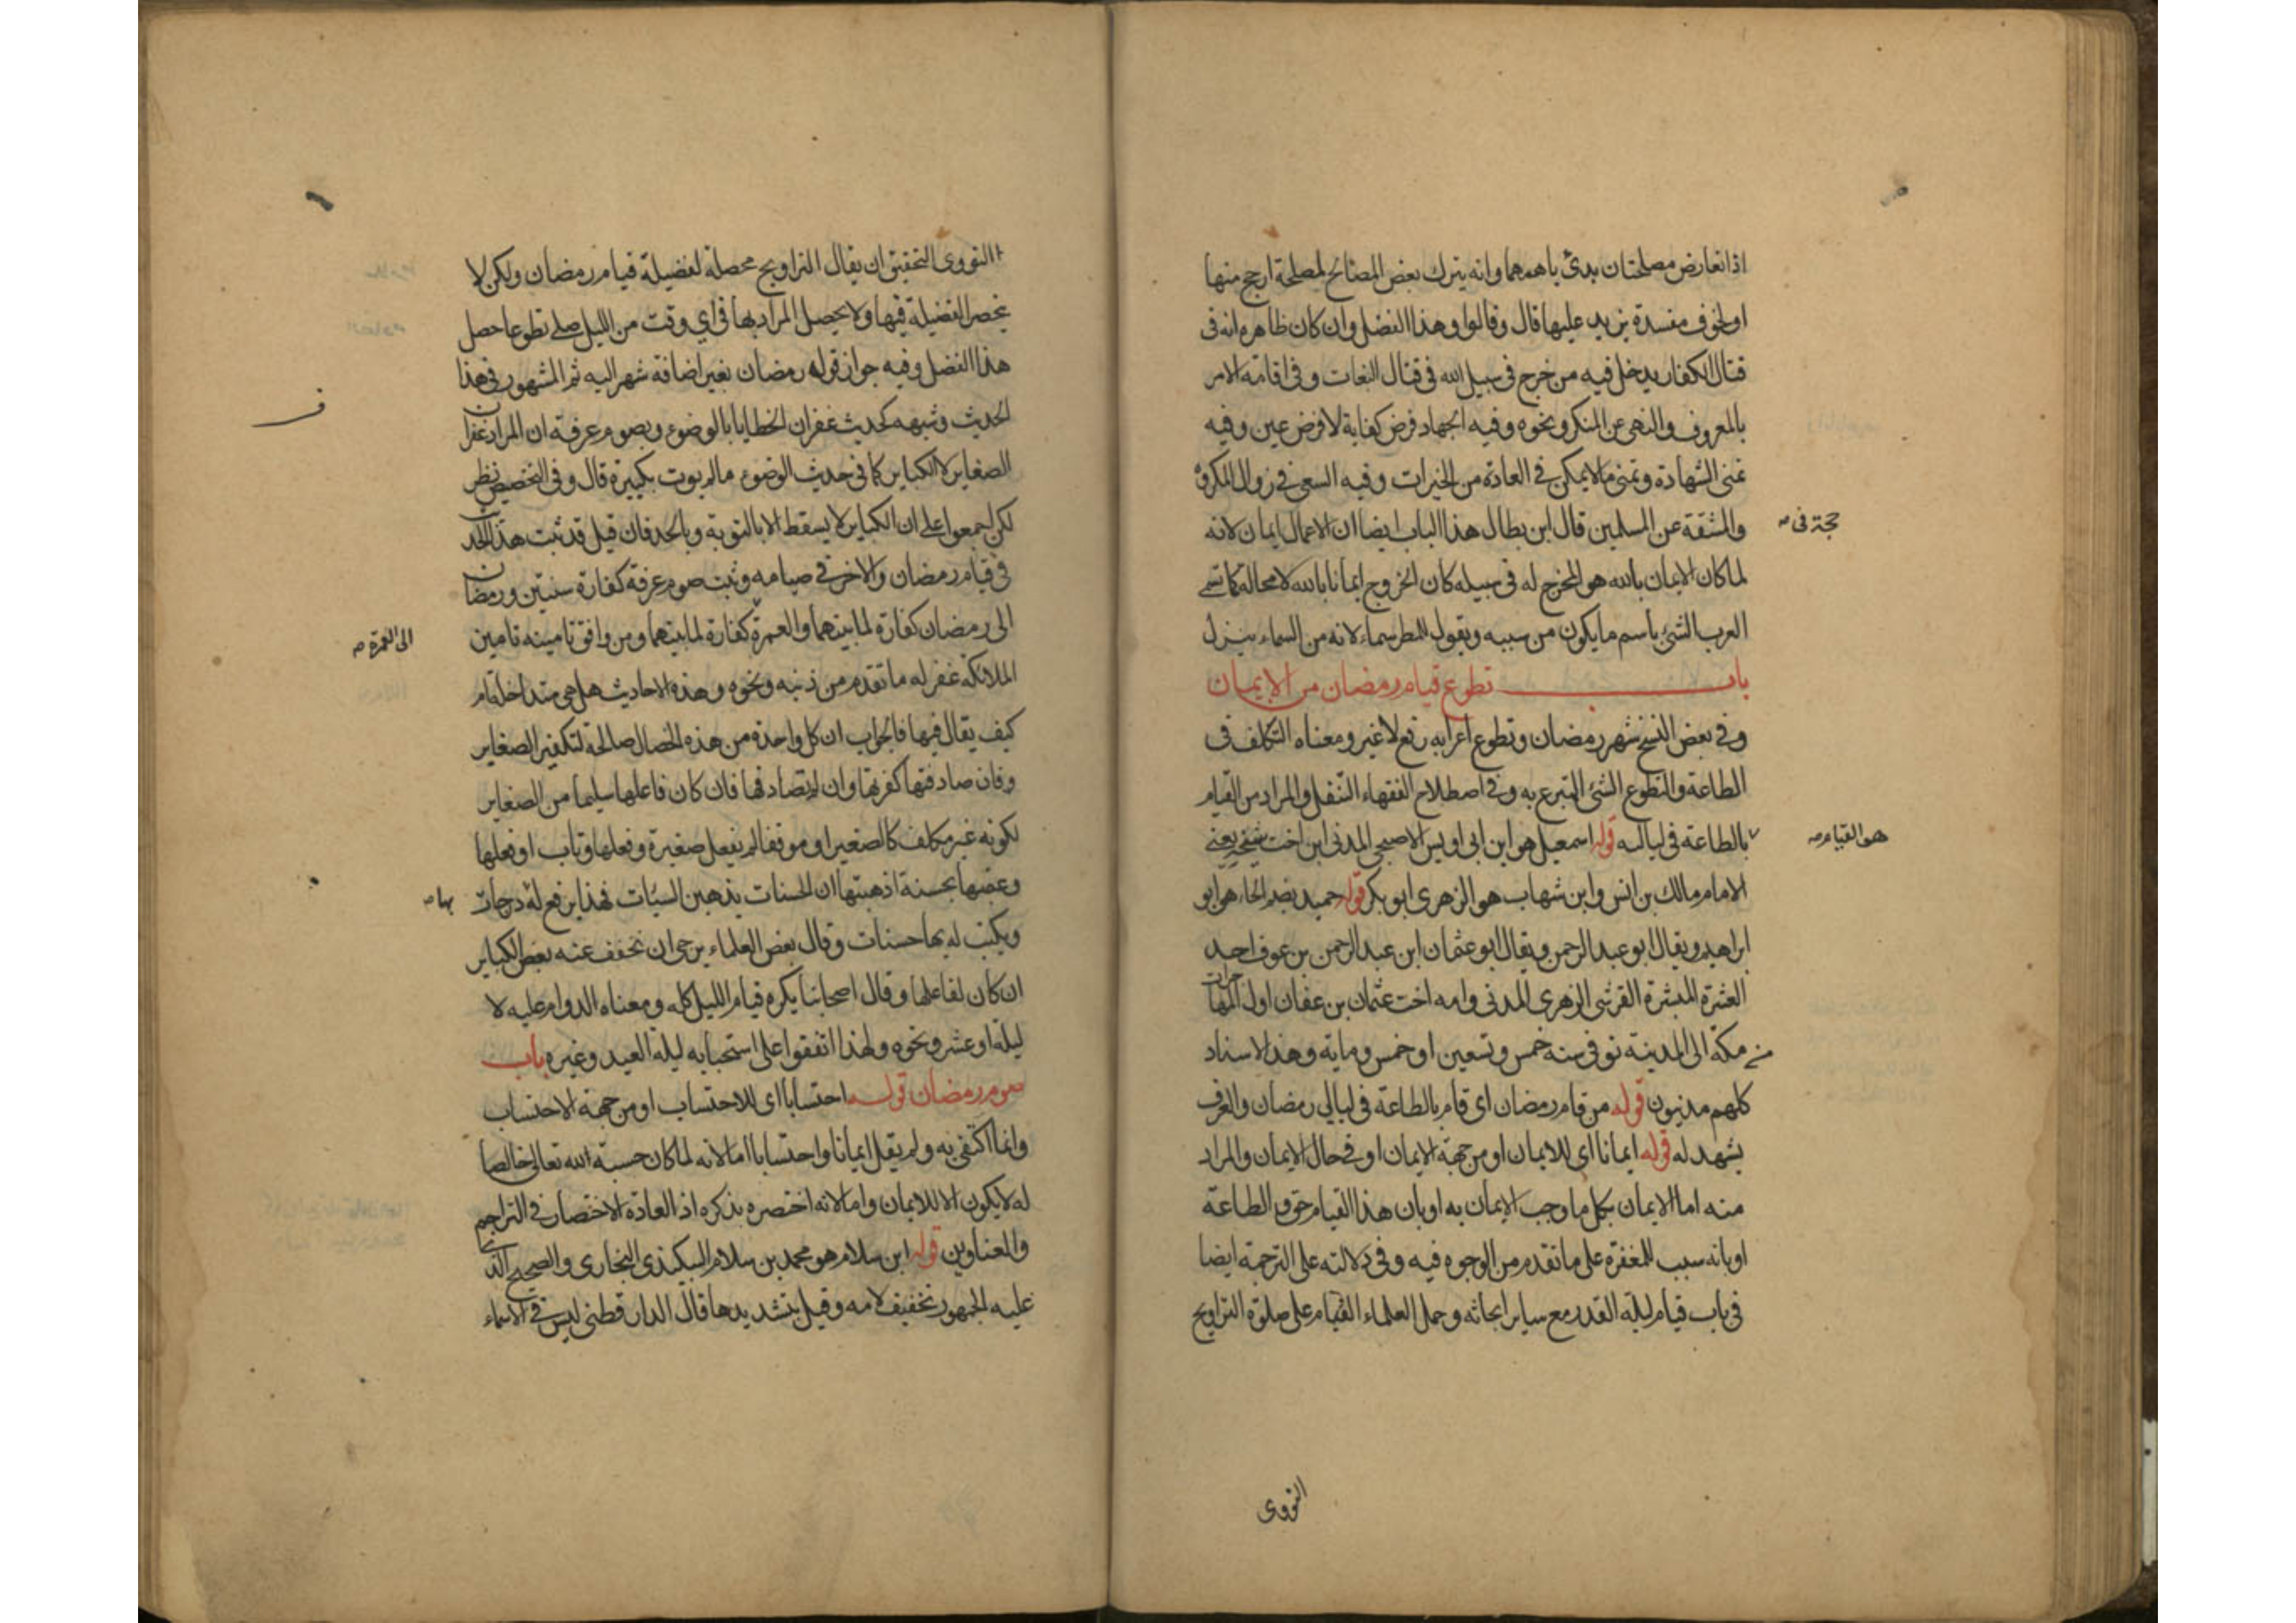 اذا تعارض مصلحتان بدئ باهمهما وانه يترك بعض المصالح لمصلحة ارجح منها
او لخوف مفسدة يزيد عليها قال وقالوا وهذا الفضل وان كان ظاهره انه في
قتال الكفار يدخل فيه من خرج في سبيل الله في قتال البغات وفي اقامة الامر
بالمعروف والنهي عن المنكر ونحوه وفيه الجهاد فرض كفاية لا فرض عين وفيه
تمنى الشهادة وتمنى مالايمكن في العادة من الخيرات وفيه السعي في زوال المكروه
والمشقة عن المسلمين قال ابن بطال هذا الباب ايضا ان الاعمال ايمان لانه
حجة في
لما كان الايمان بالله هو المخرج له في سبيله كان الخروج ايمانا بالله لا محالة كما تسمي
العرب الشئ باسم مايكون من سببه ويقول للمطر سماء لانه من السماء ينزل
باب تطوع قيام رمضان من الايمان
وفي بعض النسخ شهر رمضان وتطوع اعرابه رفع لاغير ومعناه التكلف في
الطاعة والتطوع الشئ المتبرع به وفي اصطلاح الفقهاء التنفل والمراد من القيام
بالطاعة في لياليه قوله اسمعيل هو ابن ابي اويس الاصبحي المدني ابن اخت شيخه يعني
هو القيام
الامام مالك بن انس وابن شهاب هو الزهري ابو بكر قوله حميد بضم الحاء هو ابو
ابراهيم ويقال ابو عبد الرحمن ويقال ابو عثمان ابن عبد الرحمن بن عوف احد
العشرة المبشرة القرشي الزهري المدني وامه اخت عثمان بن عفان اول المهاجرات
من مكة الى المدينة توفي سنة خمس وتسعين او خمس وماية وهذا الاسناد
كلهم مدنيون قوله من قام رمضان اي قام بالطاعة في ليالي رمضان والعرف
يشهد له قوله ايمانا اي للايمان او من جهة الايمان او في حال الايمان والمراد
منه اما الايمان بكل ما وجب الايمان به او بان هذا القيام حق و الطاعة
او بانه سبب للمغفرة على ما تقدم من الوجوه فيه وفي دلالته على الترجمة ايضا
في باب قيام ليلة القدر مع ساير ابحاثه وحمل العلماء القيام على صلوة التراويح
النووي
النووي التحقيق ان يقال التراويح محصلة لفضيلة قيام رمضان ولكن لا
ينحصر الفضيلة فيها ولا يحصل المراد بها في اي وقت من الليل صلى تطوعا حصل
هذا الفضل وفيه جواز قوله رمضان بغير اضافة شهر اليه ثم المشهور في هذا
الحديث وشبهه كحديث غفران الخطايا بالوضوء وبصوم عرفة ان المراد غفران
الصغاير لا الكباير كما في حديث الوضوء مالم يوت بكبيرة قال وفي التخصيص نظر
لكن اجمعوا على ان الكباير لا يسقط الا بالتوبة وبالحد فان قيل قد ثبت هذا الحديث
في قيام رمضان والاخر في صيامه وثبت صوم عرفة كفارة سنتين ورمضان
الى رمضان كفارة لما بينهما والعمرة كفارة لما بينهما ومن وافق تامينه تامين
الى العمرة
الملائكة غفر له ما تقدم من ذنبه ونحوه وهذه الاحاديث هل هي متداخلة ام
كيف يقال فيها فالجواب ان كل واحدة من هذه الخصال صالحة لتكفير الصغاير
وفان صادفتها كفرتها وان لم تصادفها فان كان فاعلها سليما من الصغاير
لكونه غير مكلف كالصغير او موفقا لم يفعل صغيرة وفعلها وتاب او فعلها
وعقبها بحسنة اذهبتها ان الحسنات يذهبن السيئات فهذا يرفع له درجات
بها
ويكتب له بها حسنات وقال بعض العلماء يرجى ان تخفف عنه بعض الكباير
ان كان لفاعلها وقال اصحابنا يكره قيام الليل كله ومعناه الدوام عليه لا
ليلة او عشر ونحوه ولهذا اتفقوا على استحبابه ليلة العيد وغيره باب
صوم رمضان قوله احتسابا اي للاحتساب او من جهة الاحتساب
وانما اكتفى به ولم يقل ايمانا واحتسابا اما لانه لما كان حسبة الله تعالى خالصا
له لا يكون الا للايمان واما لانه اختصره بذكره اذ العادة الاختصار في التراجم
والعناوين قوله ابن سلام هو محمد بن سلام البيكندي البخاري والصحيح الذي
عليه الجمهور تخفيف لامه وقيل بتشديدها قال الدارقطني ليس في الاسماء